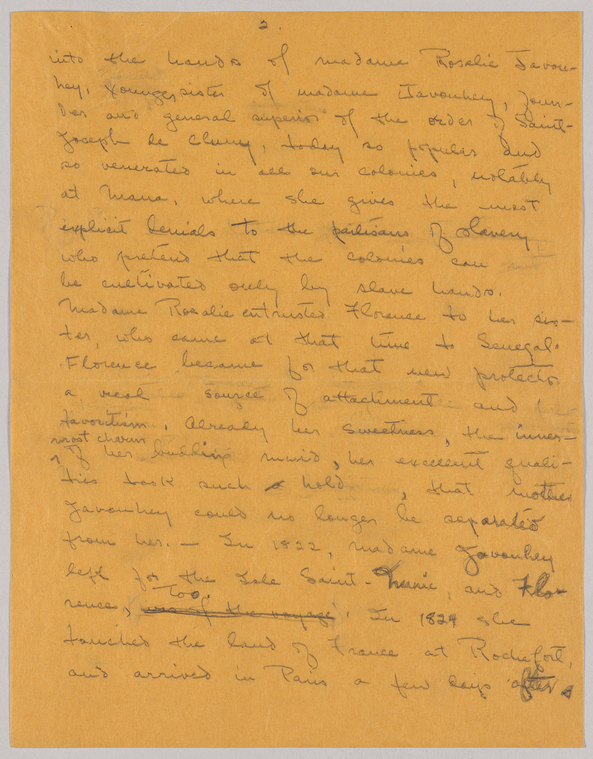 2.
into the hands of madame Rosalie Javou-
hey, younger sister of madame Javouhey, foun-
der and general superior of the order of Saint-
Joseph de Cluny, today so popular and
so venerated in all our colonies, notably
at Mana, where she gives the most
explicit denials to the partisans of slavery
who pretend that the colonies can
be cultivated only by slave hands.
Madame Rosalie entrusted Florence to her sis-
ter, who came at that time to Senegal.
Florence became for that new protector
a real source of attachment and
favoritism. Already her sweetness, the inner-
most charm
of her budding mind, her excellent quali-
ties took such a hold, that mother
Javouhey could no longer be separated
from her. — In 1822, madame Javouhey
left for the Isle Saint- and Flo-
rence, too. was of the voyage. In 1824 she
touched the land of France at Rochefort,
and arrived in Paris a few days after